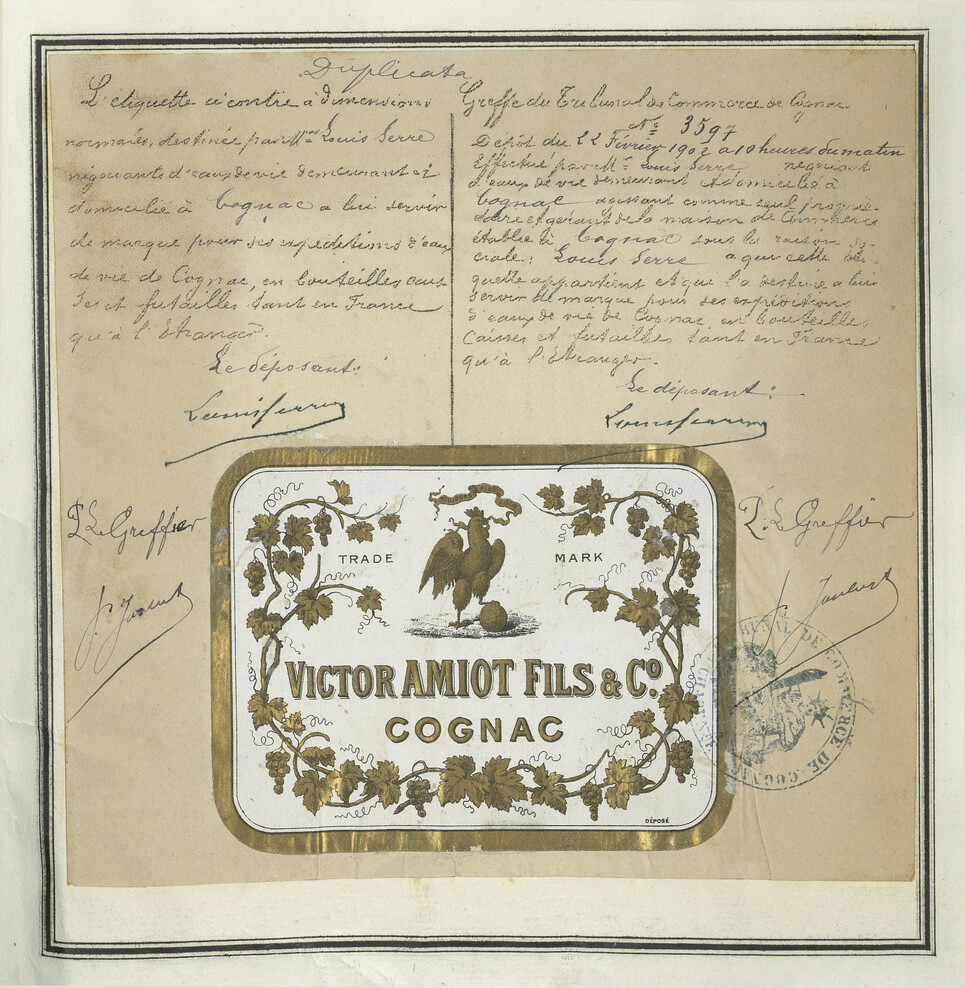 Duplicata
L'étiquette ci contre à dimensions
normales, destinée par Mr Louis Serre
négociants d'eaux de vie demeurant et
domicilié à Cognac a lui servir
de marque pour ses expéditions d'eaux
de vie de Cognac, en bouteilles cais
ses et futailles tant en France
qu'à l'Etranger.
Le déposant:
Louis Serre
P. Le Greffier
Greffe du Tribunal de Commerce de Cognac
N° 3597
Dépôt du 22 Février 1902 à 10 heures du matin
Effectué par Mr Louis Serre négociant
d'eaux de vie demeurant et domicilié à
Cognac agissant comme seul proprié-
taire et gérant de la maison de Commerce
établie à Cognac sous la raison so-
ciale: Louis Serre a qui cette éti-
quette appartient et qui l'a destine a lui
servir de marque pour ses expéditions
d'eaux de vie de Cognac, en bouteilles,
Caisses et futailles tant en France
qu'à l'Etranger.
Le déposant:
Louis Serre
P. Le Greffier
TRADE MARK
VICTOR AMIOT FILS & Co.
COGNAC
DÉPOSÉ
TRIBUNAL DE COMMERCE DE COGNAC